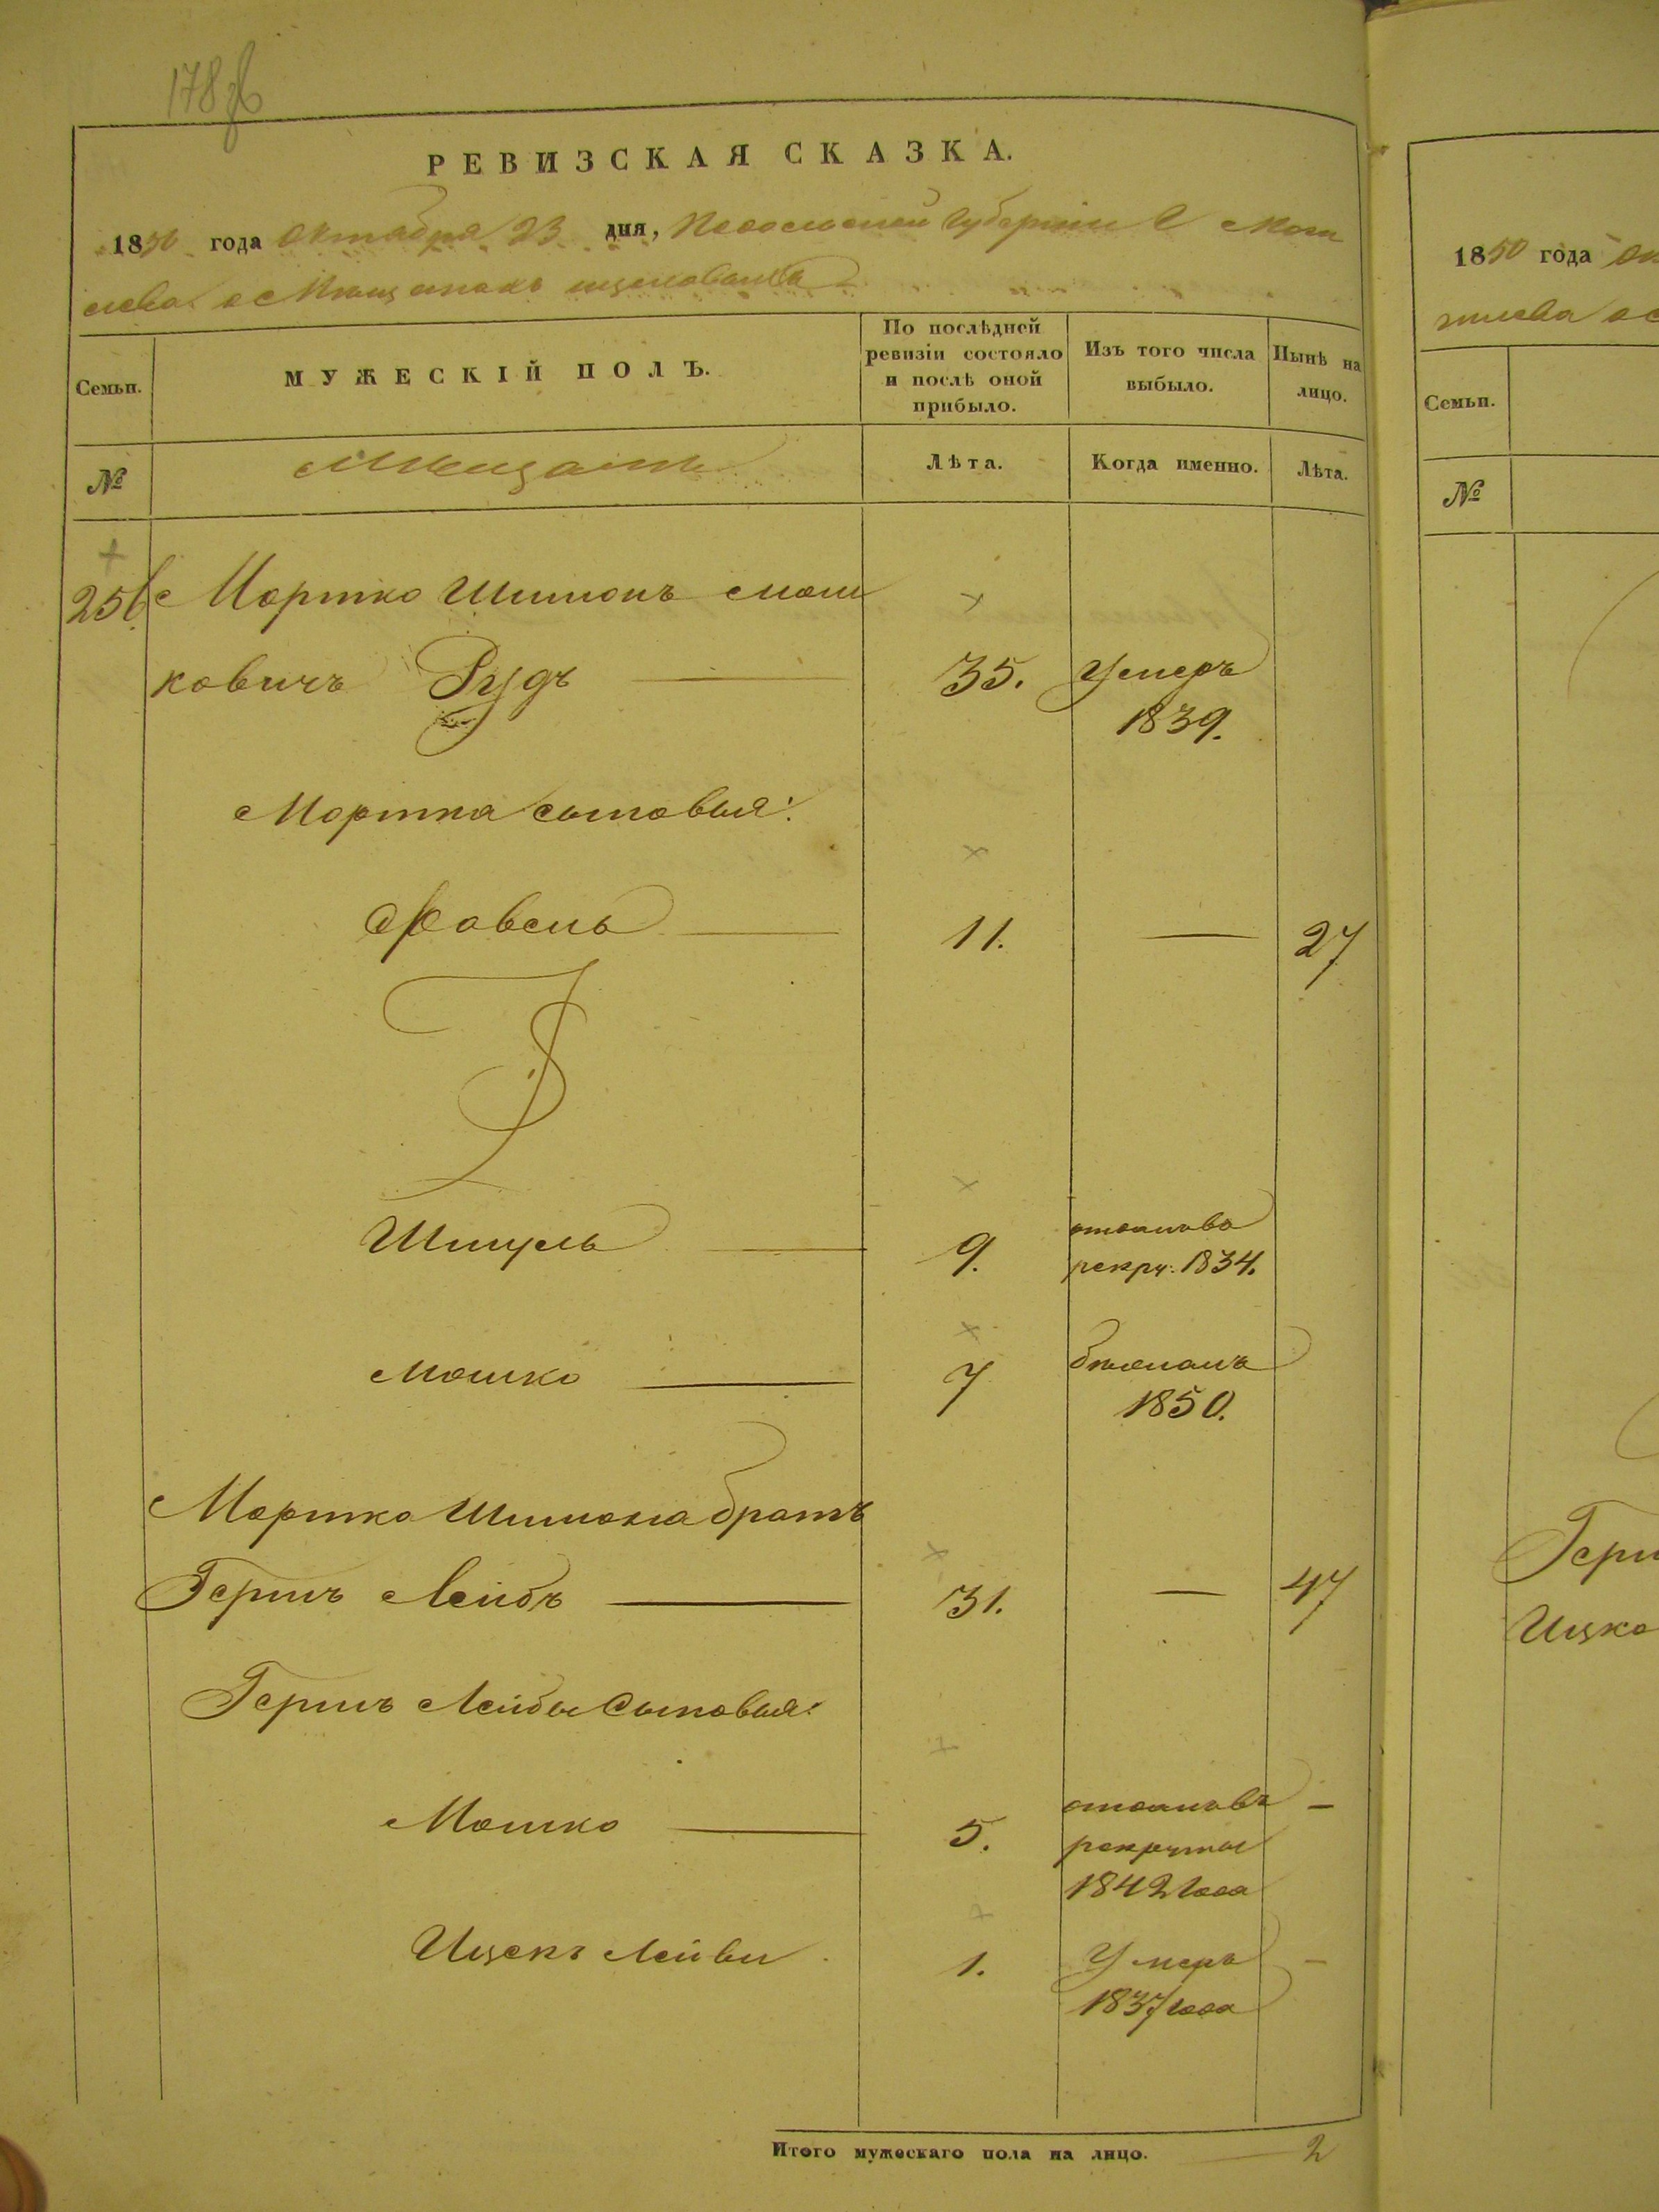 178 об
РЕВИЗСКАЯ СКАЗКА.
1850 года Октября 23 дня, Подольской Губернии Г Моги
лева о Мещанахъ
Семьи.
МУЖЕСКІЙ ПОЛЪ.
По послѣдней
ревизіи состояло
и послѣ оной
прибыло.
Изъ того числа
выбыло.
Нынѣ на
лицо.
№
Мещане
Лѣта.
Когда именно.
Лѣта.
256 Мортко Шимонъ Мош
ковичъ Рудъ 35. Умеръ
1839.
Мортка сыновья:
Ховель 11. — 27
Шмуль 9. отданъ въ
рекру: 1834.
Мошко 7 въ
1850.
Мортко Шимона братъ
Гершъ Лейбъ 31. — 47
Гершъ Лейбы Сыновья:
Мошко 5. отданъ въ —
рекруты
1842 года
Ицекъ Лейви 1. Умеръ —
1837 года
Итого мужескаго пола на лицо. 2
1850 года Ок
гилева о
Семьи.
№
Герш
Ицко